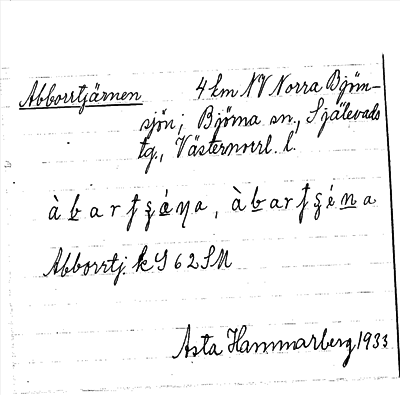 Abborrtjärnen 4 km NV Norra Björn-
sjön, Björna sn., Själevads
tg., Västernorrl. l.
àbartʃéna, àbartʃéna
Abborrtj. k 962 SM
Asta Hammarberg 1933